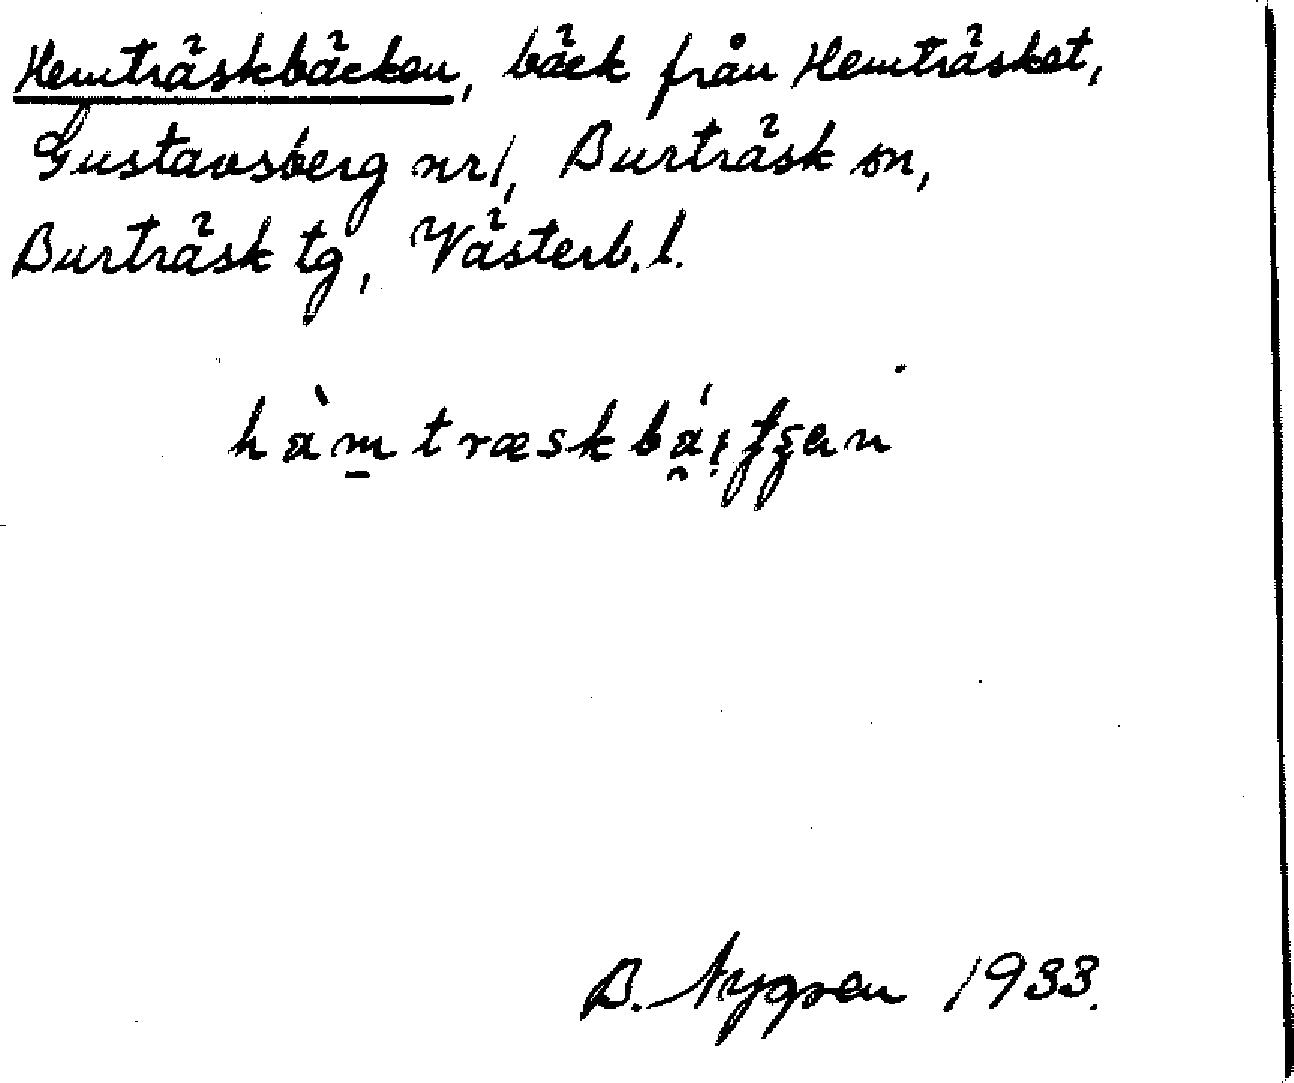 Hemträskbäcken, bäck från Hemträsket,
Gustavsberg nr 1, Burträsk sn,
Burträsk tg, Västerb. l.
B. Nygren 1933.